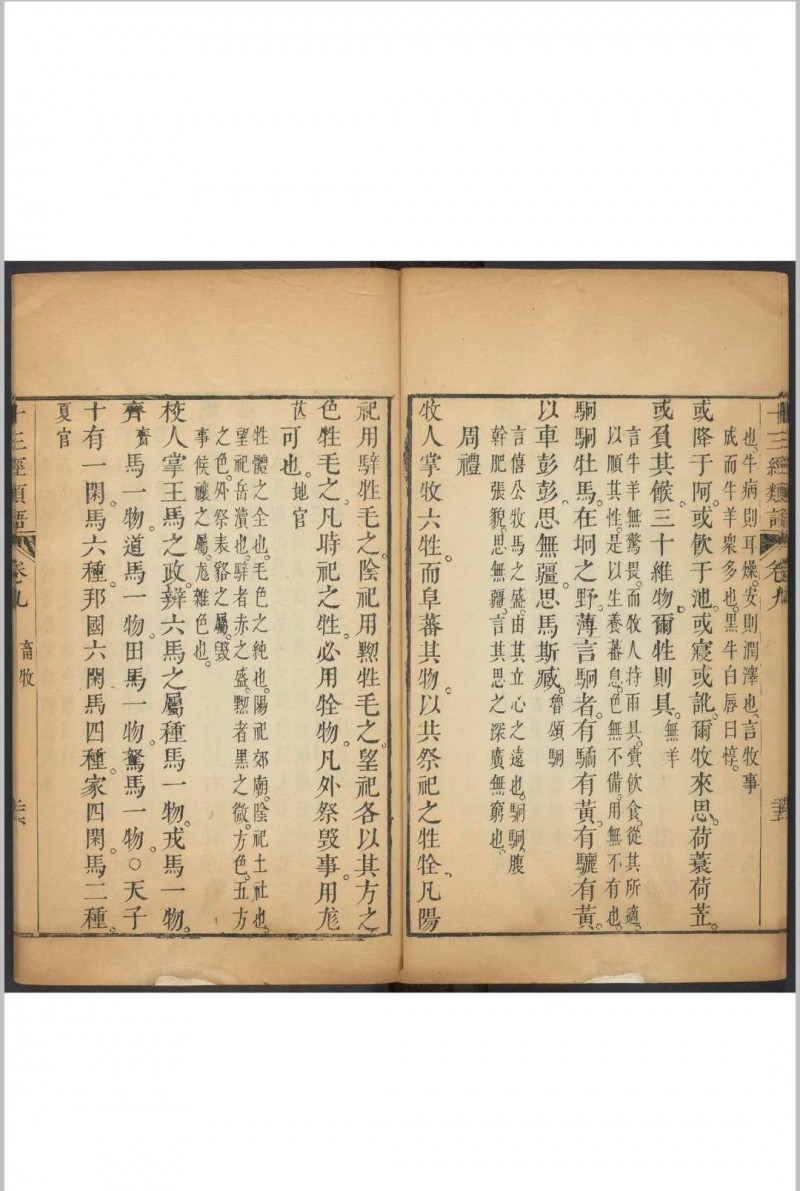 十三經類語 卷九
也牛病則耳燥安則潤澤也言牧事
成而牛羊衆多也黑牛白唇曰犉
或降于阿或飲于池或寢或訛爾牧來思荷蓑荷笠
或負其餱三十維物爾牲則具無羊
言牛羊無驚畏而牧人持雨具賫飲食從其所適
以順其性是以生養蕃息色無不備用無不有也
駉駉牡馬在坰之野薄言駉者有驈有黃有驪有黃
以車彭彭思無疆思馬斯臧魯頌駉
言僖公牧馬之盛由其立心之遠也駉駉腹
幹肥張貌思無疆言其思之深廣無窮也
周禮
牧人掌牧六牲而阜蕃其物以共祭祀之牲牷凡陽
祀用騂牲毛之陰祀用黝牲毛之望祀各以其方之
色牲毛之凡時祀之牲必用牷物凡外祭毀事用尨
可也地官
牲體之全也毛色之純也陽祀郊廟陰祀土社也
望祀岳瀆也騂者赤之盛黝者黑之微方色五方
之色外祭表貉之屬毀
事候禳之屬尨雜色也
校人掌王馬之政辨六馬之屬種馬一物戎馬一物
齊齋馬一物道馬一物田馬一物駑馬一物○天子
十有一閑馬六種邦國六閑馬四種家四閑馬二種
夏官
十三經類語 卷九 畜牧